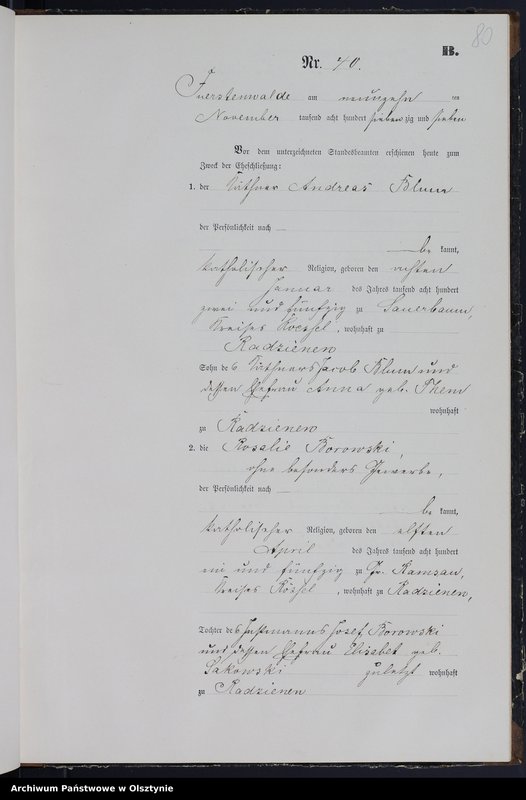 80
B.
Nr. 40.
Fuerstenwalde am neunzehn ten
November tausend acht hundert siebenzig und sieben
Vor dem unterzeichneten Standesbeamten erschienen heute zum
Zweck der Eheschließung:
1. der Käthner Andreas Blum
der Persönlichkeit nach
be kannt,
katholischer Religion, geboren den achten
Januar des Jahres tausend acht hundert
zwei und fünfzig zu Sauerbaum,
Kreises Roessel, wohnhaft zu
Radzienen
Sohn des Käthners Jacob Blum und
dessen Ehefrau Anna geb. Them
wohnhaft
zu Radzienen
2. die Rosalie Borowski,
ohne besonders Gewerbe,
der Persönlichkeit nach
be kannt,
katholischer Religion, geboren den elften
April des Jahres tausend acht hundert
ein und fünfzig zu Gr. Ramsau,
Kreises Rössel, wohnhaft zu Radzienen,
Tochter des Josef Borowski
und dessen Ehefrau Elisabet geb.
Sakowski zuletzt wohnhaft
zu Radzienen
Archiwum Państwowe w Olsztynie